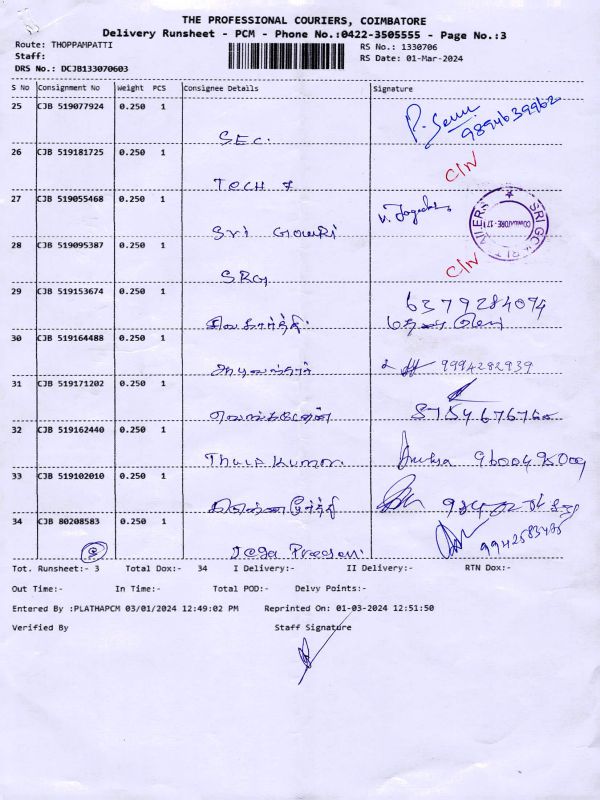 THE PROFESSIONAL COURIERS, COIMBATORE
Delivery Runsheet - PCM - Phone No.:0422-3505555 - Page No.:3
Route: THOPPAMPATTI RS No.: 1330706
Staff: RS Date: 01-Mar-2024
DRS No.: DCJB133070603
S No Consignment No Weight PCS Consignee Details Signature
25 CJB 519077924 0.250 1
SEC. 9894639962
26 CJB 519181725 0.250 1 C/N
TECH
27 CJB 519055468 0.250 1
Sri Gowri
28 CJB 519095387 0.250 1 C/N
SRG
29 CJB 519153674 0.250 1 6379284074
சிவகார்த்தி
30 CJB 519164488 0.250 1
9994282939
31 CJB 519171202 0.250 1
32 CJB 519162440 0.250 1
Kumar. 9600495009
33 CJB 519102010 0.250 1
34 CJB 80208583 0.250 1
Jega
Tot. Runsheet:- 3 Total Dox:- 34 I Delivery:- II Delivery:- RTN Dox:-
Out Time:- In Time:- Total POD:- Delvy Points:-
Entered By :PLATHAPCM 03/01/2024 12:49:02 PM Reprinted On: 01-03-2024 12:51:50
Verified By Staff Signature